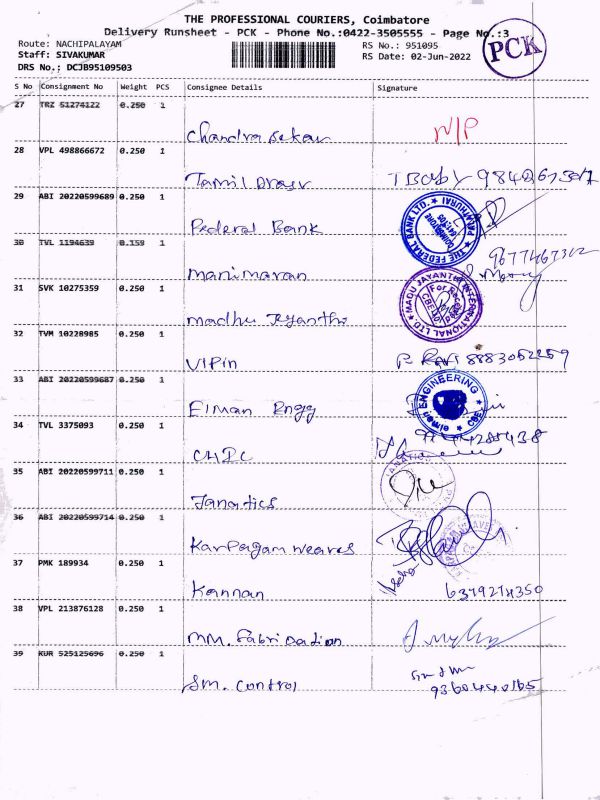 THE PROFESSIONAL COURIERS, Coimbatore
Delivery Runsheet - PCK - Phone No.:0422-3505555 - Page No.:3
Route: NACHIPALAYAM
Staff: SIVAKUMAR
DRS No.: DCJB95109503
RS No.: 951095
RS Date: 02-Jun-2022
PCK
S No Consignment No Weight PCS Consignee Details Signature
27 TRZ 51274122 0.250 1
Chandra Sekar N/P
28 VPL 498866672 0.250 1
Tamil
29 ABI 20220599689 0.250 1
Federal Bank
THE FEDERAL BANK LTD.
30 TVL 1194639 0.159 1
Manimaran
31 SVK 10275359 0.250 1
Madhu Jeyanthi
32 TVM 10228985 0.250 1
Vipin P. Ravi 8883052259
33 ABI 20220599687 0.250 1
Elman Engg
ENGINEERING
34 TVL 3375093 0.250 1
35 ABI 20220599711 0.250 1
Janatics
36 ABI 20220599714 0.250 1
Karpagam Weaves
37 PMK 189934 0.250 1
Kannan
38 VPL 213876128 0.250 1
MM. Fabrication
39 KUR 525125696 0.250 1
SM. Control